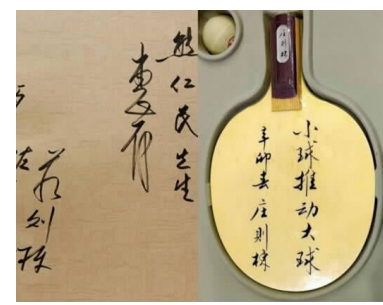 熊仁民先生
惠存
庄则栋
小球推动大球
辛卯春 庄则栋